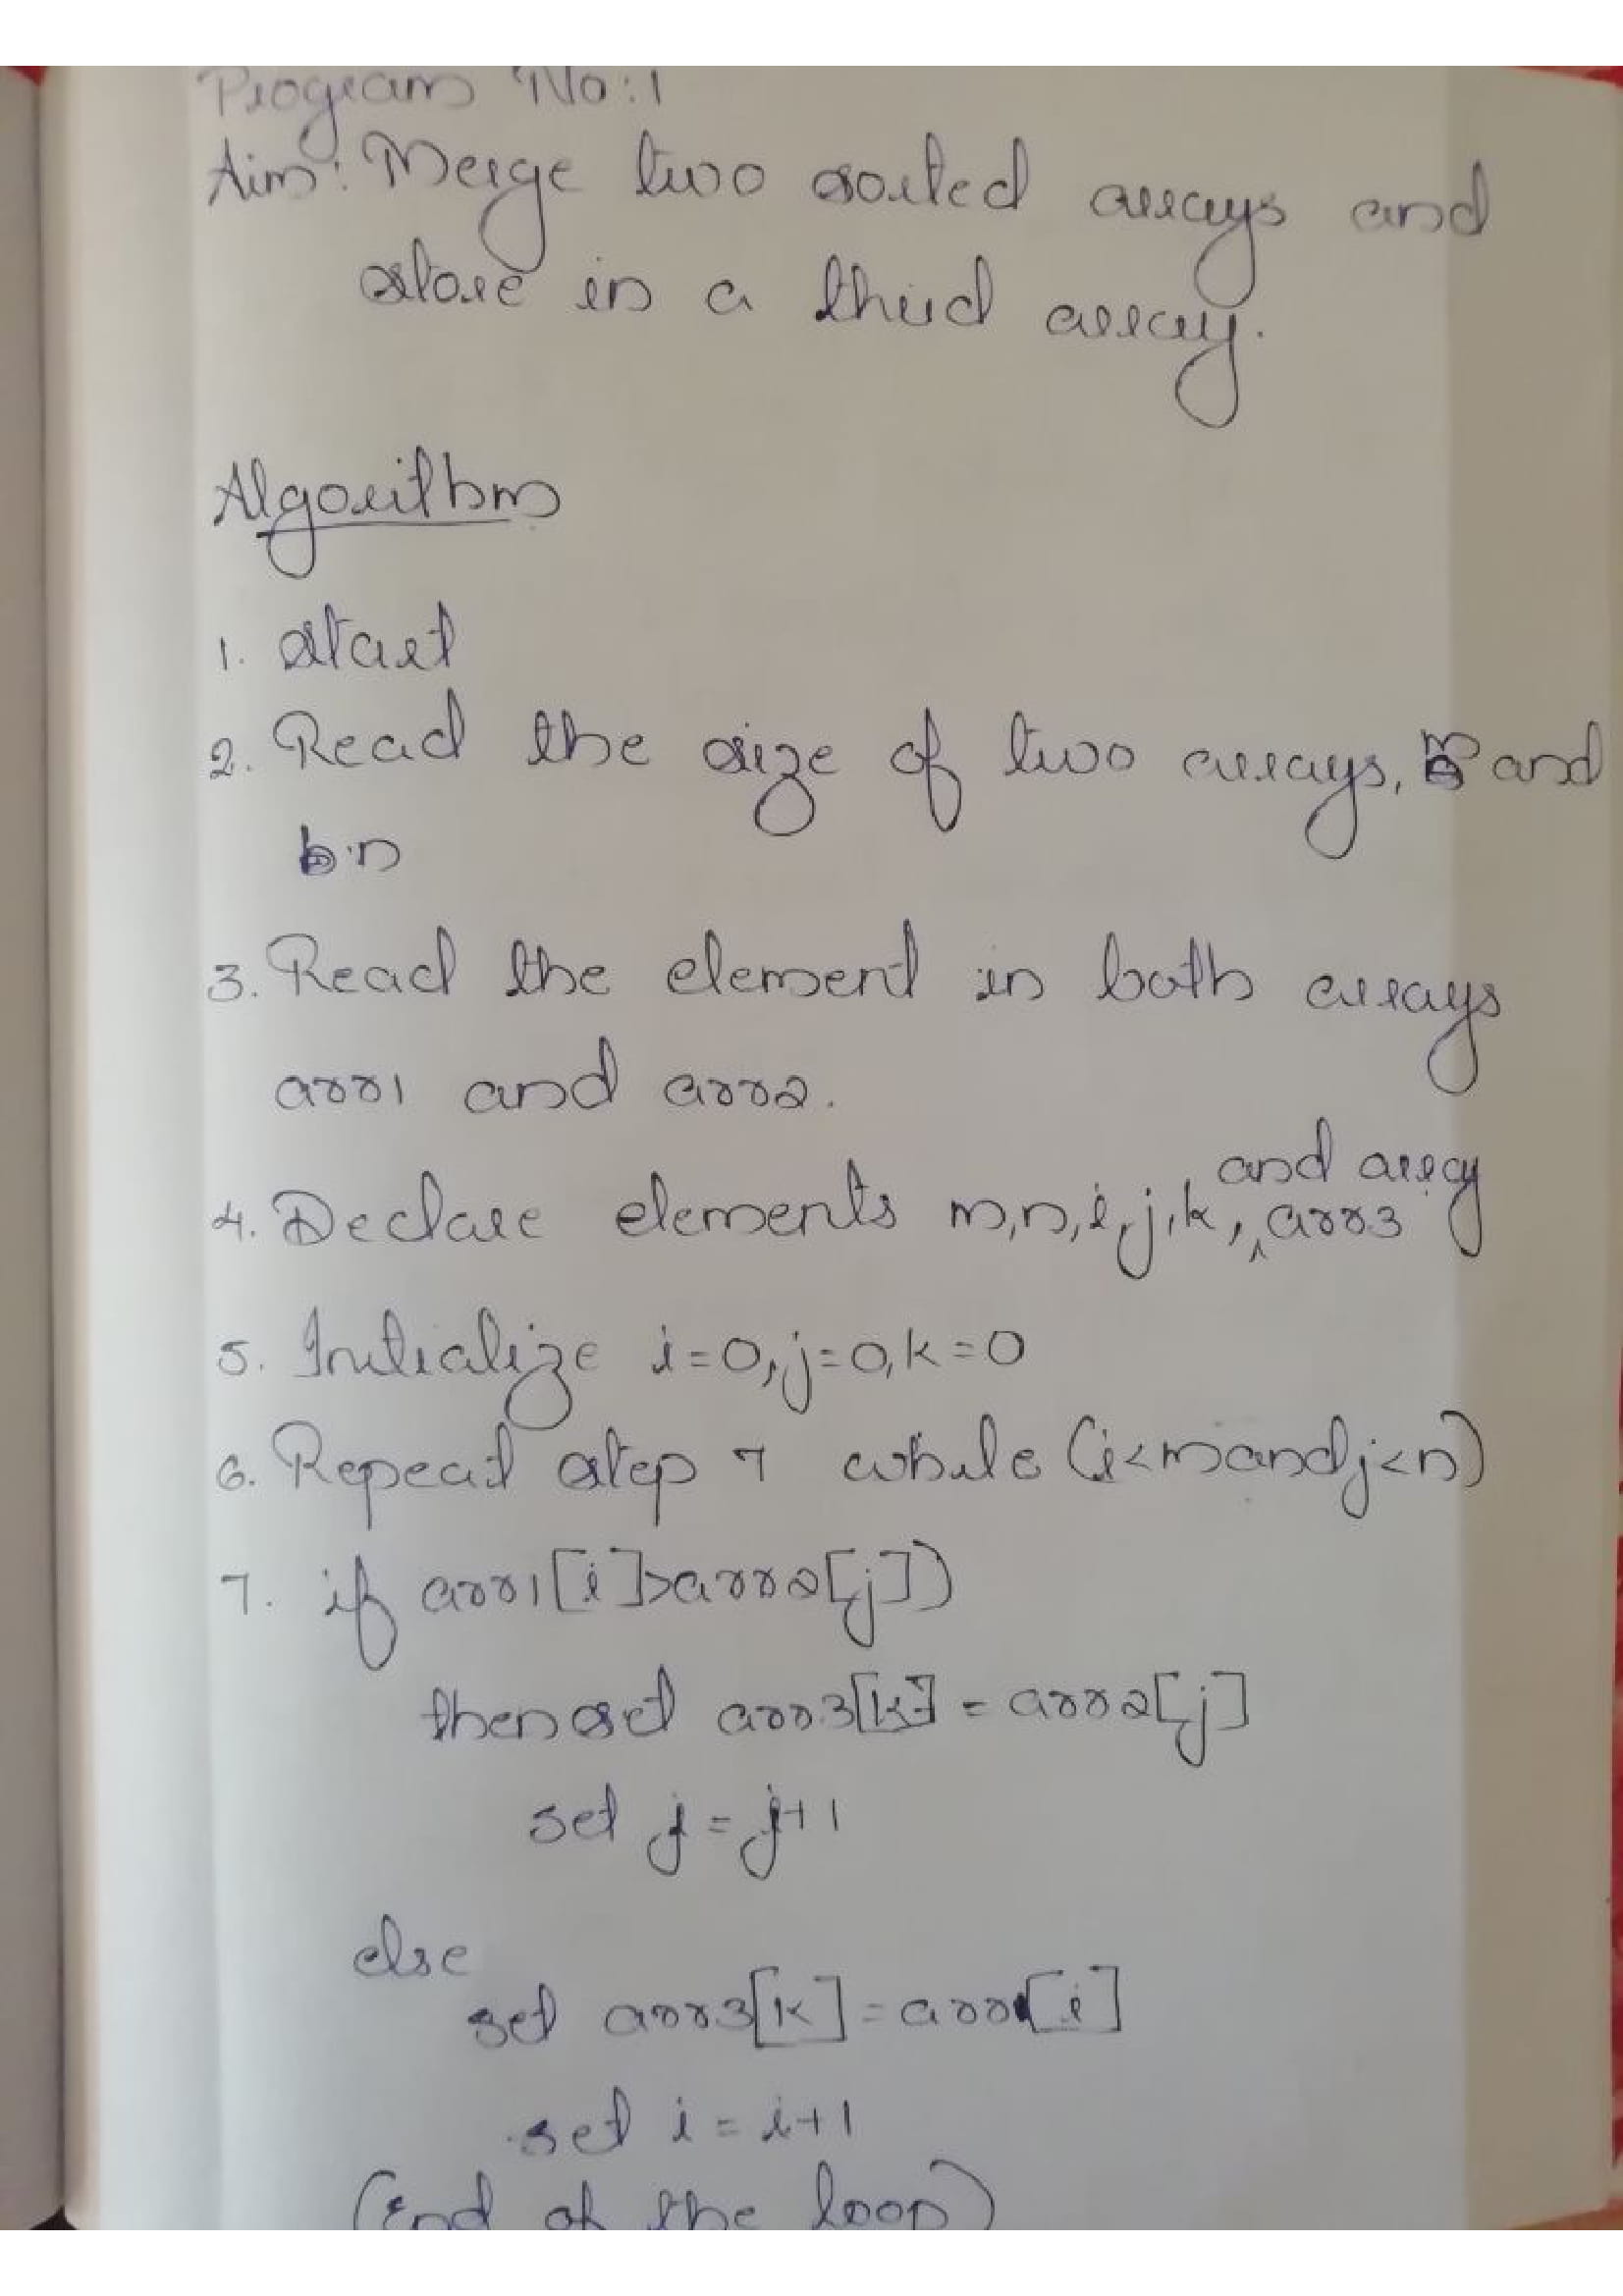 Program No:1
Aim: Merge two sorted arrays and
store in a third array.
Algorithm
1. Start
2. Read the size of two arrays, m and
n
3. Read the element in both arrays
arr1 and arr2.
4. Declare elements m,n,i,j,k, and array arr3
5. Initialize i=0,j=0,k=0
6. Repeat step 7 while (i<m and j<n)
7. if arr1[i]>arr2[j])
then set arr3[k] = arr2[j]
set j = j+1
else
set arr3[k] = arr1[i]
set i = i+1
(End of the loop)